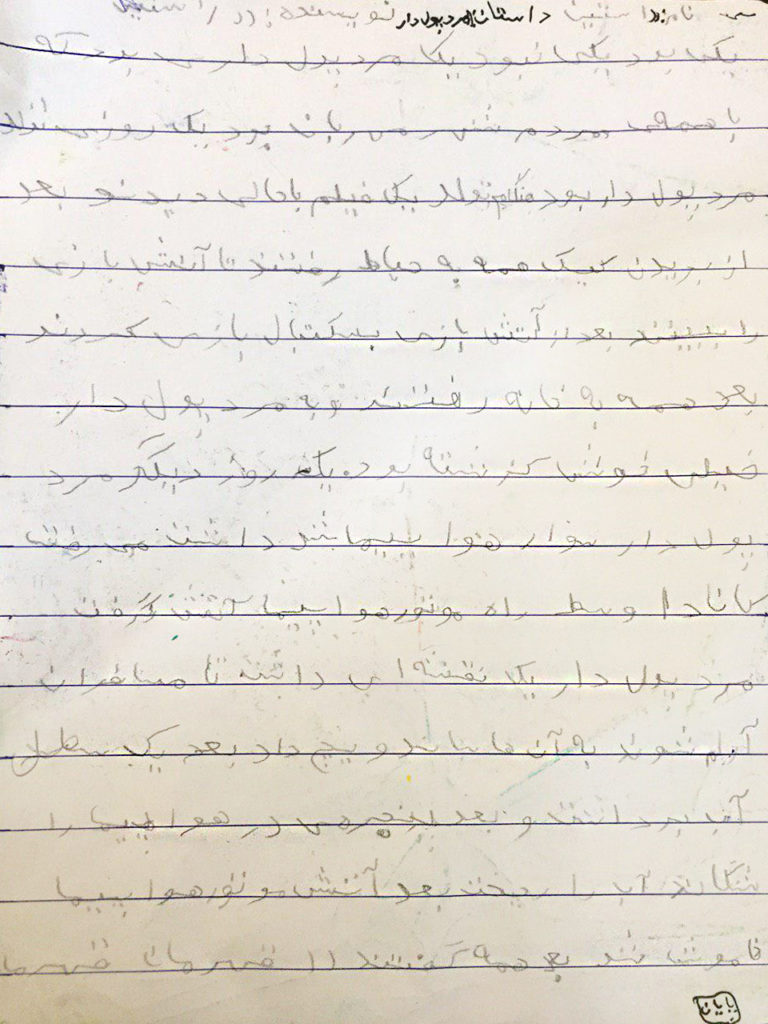 نام: داستان: مرد پول دار نویسنده:
یکی بود یکی نبود یک مرد پول دار می بود که
با همه ی مردم مهربان بود یک روز می تولد
مرد پول دار بود هنگام تولد یک فیلم باحالی دیدند و بعد
از بریدن کیک همه به حیاط رفتند تا آتش بازی
را ببینند بعد از آتش بازی بسکتبال بازی کردند
بعد همه به خانه رفتند و به مرد پول دار
خیلی خوش گذشته بود. یک روز دیگر مرد
پول دار سوار هوا پیما شد داشت می رفت
کانادا وسط راه موتور هواپیما آتش گرفت
مرد پول دار یک نقشه ای داشت تا مسافران
آرام شوند به آن ها ساندویچ داد بعد یک سطل
آب برداشت و بعد پنجره ی در هواپیما را
شکاند آب را ریخت بعد آتش موتور هواپیما
خاموش شد بعد همه گفتند (( قهرمان قهرما
پایان